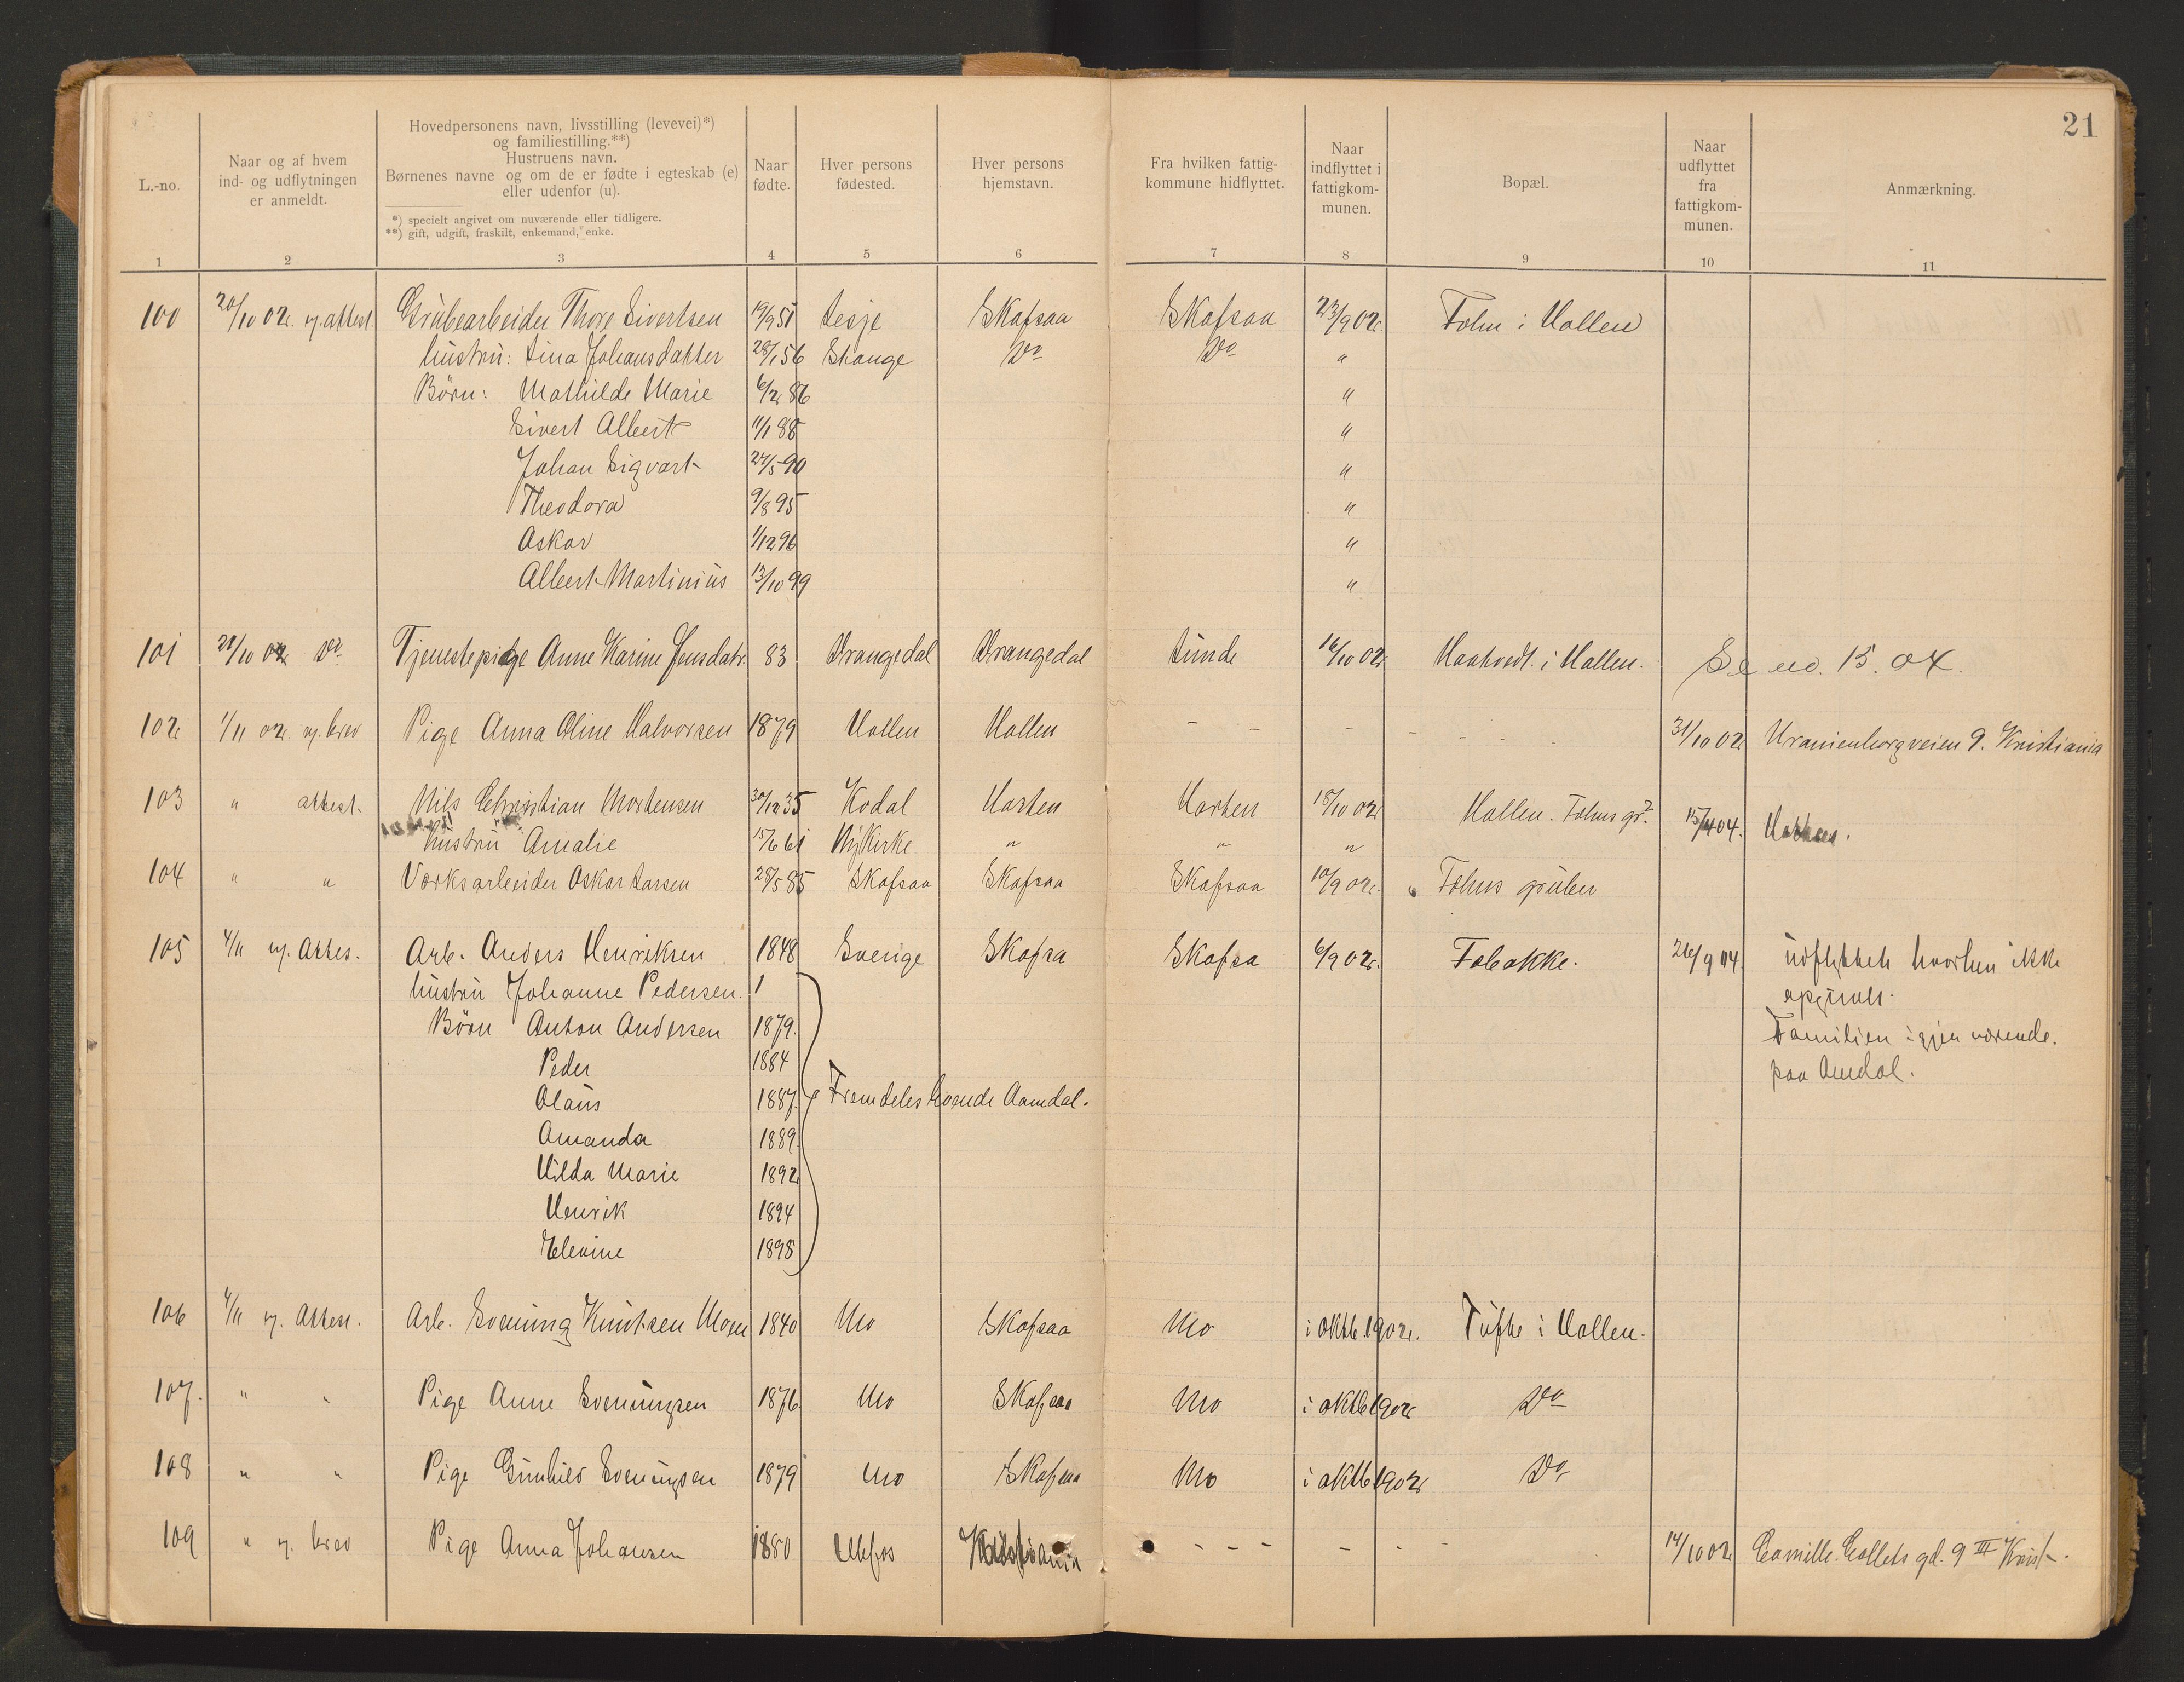 21
L.-no.
Naar og af hvem
ind- og udflytningen
er anmeldt.
Hovedpersonens navn, livsstilling (levevei)*)
og familiestilling.**)
Hustruens navn.
Børnenes navne og om de er fødte i egteskab (e)
eller udenfor (u).
*) specielt angivet om nuværende eller tidligere.
**) gift, udgift, fraskilt, enkemand, enke.
Naar
fødte.
Hver persons
fødested.
Hver persons
hjemstavn.
Fra hvilken fattig-
kommune hidflyttet.
Naar
indflyttet i
fattigkom-
munen.
Bopæl.
Naar
udflyttet
fra
fattigkom-
munen.
Anmærkning.
1 2 3 4 5 6 7 8 9 10 11
100 20/10 02. v. attest. Grubearbeider Thore Sivertsen 19/9 51 Lesje Skafsaa Skafsaa 23/9 02. i Hollen
hustru: Lina Johansdatter 28/1 56 Stange Do Do "
Børn: Mathilde Marie 6/2 86 "
Sivert Albert 11/1 88 "
Johan Sigvart 24/5 90 "
Theodora 9/8 95 "
Oskar 1/12 96 "
Albert Martinius 13/10 99 "
101 21/10 02 Do Tjenestepige Anne Karine Jensdatr. 83 Drangedal Drangedal Lunde 16/10 02. i Hollen. Se no. 15. 04.
102 1/11 02. v. brev Pige Anna Oline Halvorsen 1879 Hollen Hollen - - - - - - 31/10 02 Uranienborgveien 9. Kristiania
103 " attest. Nils Christian Mortensen 30/12 35 Kodal Horten Horten 18/10 02 Hollen. Fehns gr. 15/4 04.
hustru Amalie 15/6 61 Nykirke " " "
104 " " Værksarbeider Oskar Larsen 28/5 85 Skafsaa Skafsaa Skafsaa 10/9 02. Fehns gruber
105 4/11 v. Attes. Arb. Anders Henriksen 1848 Sverige Skafsa Skafsa 6/9 02. Febakke. 26/9 04. udflyttet hvorhen ikke
hustru Johanne Pedersen. 1 opgivet.
Børn Anton Andersen 1879. Familien igjen værende.
Peder 1884 paa Amdal.
Olaus 1887. Fremdeles boende Aamdal.
Amanda 1889
Hilda Marie 1892
Henrik 1894
Elevine 1898
106 4/11 v. Attest. Arb. Svenung Knutsen Moen 1840 Mo Skafsaa Mo i oktb 1902. Tufte i Hollen.
107. " " Pige Anne Svenungsen 1876 Mo Skafsaa Mo i oktb 1902 Do
108 " " Pige Gunhild Svenungsen 1879 Mo Skafsaa Mo i oktb 1902 Do
109 " v. brev Pige Anna Johansen 1880 Ulefos Kristiania - - - - - - 14/10 02 Camilla Collets gd. 9 III Krist.